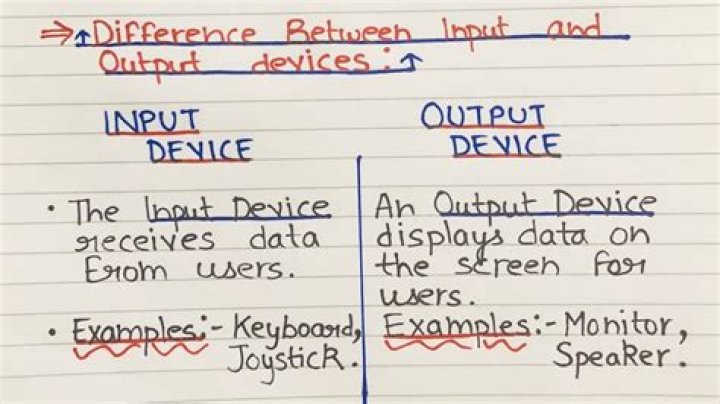 ⇒ ↑Difference Between Input and
Output devices:↑
INPUT
DEVICE
• The Input Device
receives data
from users.
• Examples:- Keyboard,
Joystick.
OUTPUT
DEVICE
An Output Device
displays data on
the screen for
users.
Examples:- Monitor,
Speaker.